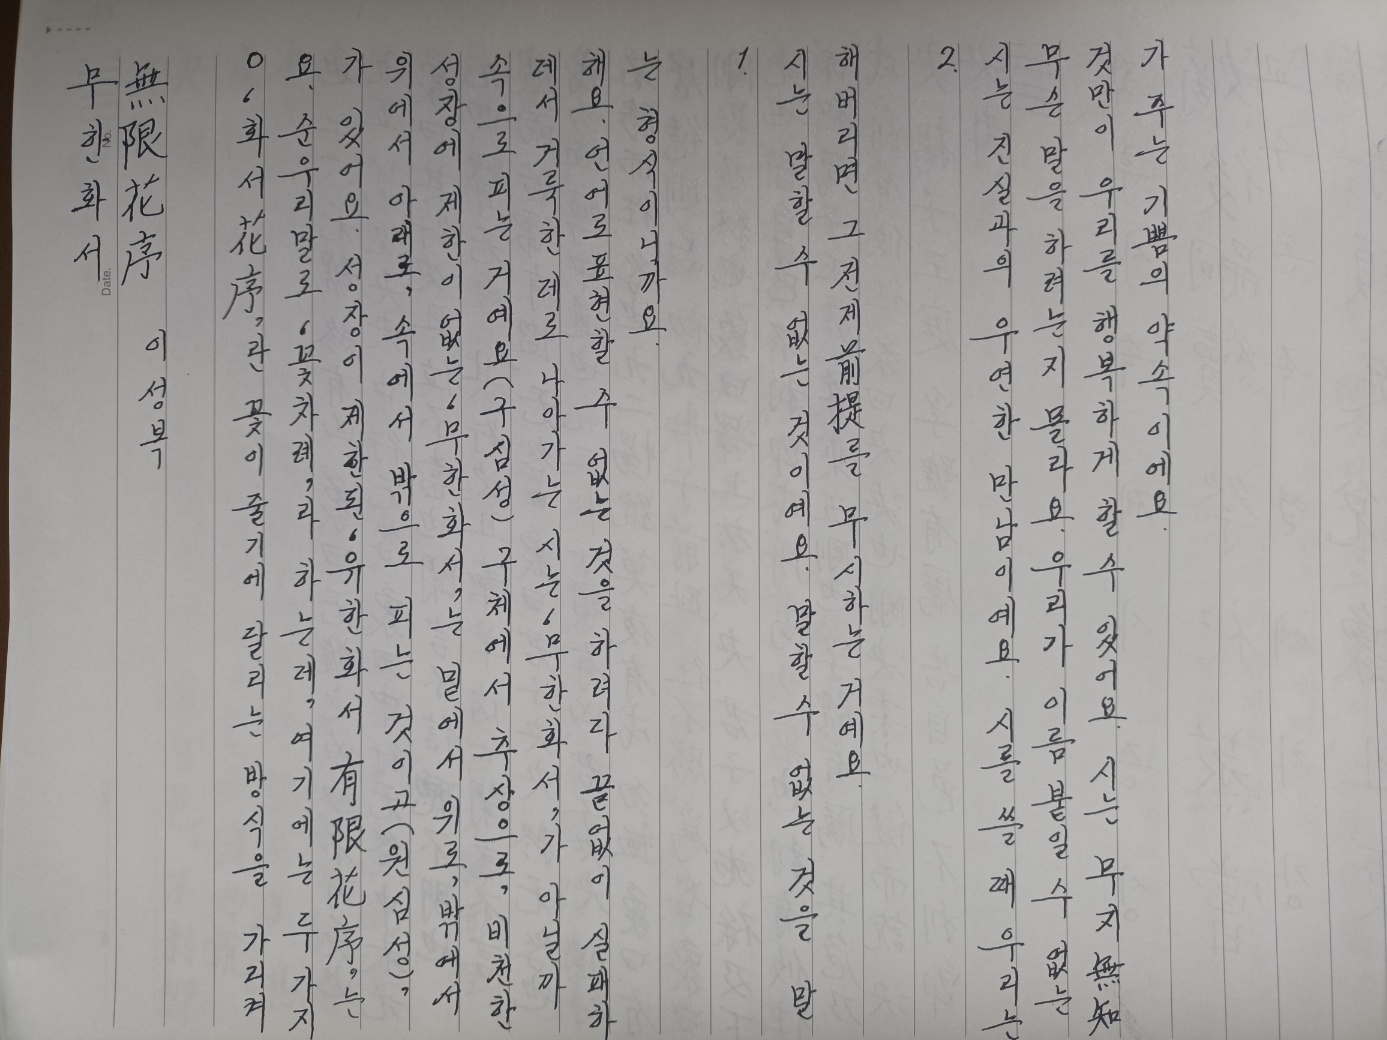 무한화서
No.
Date.
無限花序 이성복
0 '화서花序'란 꽃이 줄기에 달리는 방식을 가리켜
요. 순우리말로 '꽃차례'라 하는데, 여기에는 두 가지
가 있어요. 성장이 제한된 '유한화서有限花序'는
위에서 아래로, 속에서 밖으로 피는 것이고(원심성),
성장에 제한이 없는 '무한화서'는 밑에서 위로, 밖에서
속으로 피는 거예요(구심성) 구체에서 추상으로, 비천한
데서 거룩한 데로 나아가는 시는 '무한화서'가 아닐까
해요. 언어로 표현할 수 없는 것을 하려다 끝없이 실패하
는 형식이니까요.
1.
시는 말할 수 없는 것이예요. 말할 수 없는 것을 말
해버리면 그 전제前提를 무시하는 거예요.
2.
시는 진실과의 우연한 만남이예요. 시를 쓸 때 우리는
무슨 말을 하려는지 몰라요. 우리가 이름 붙일 수 없는
것만이 우리를 행복하게 할 수 있어요. 시는 무지無知
가 주는 기쁨의 약속이에요.